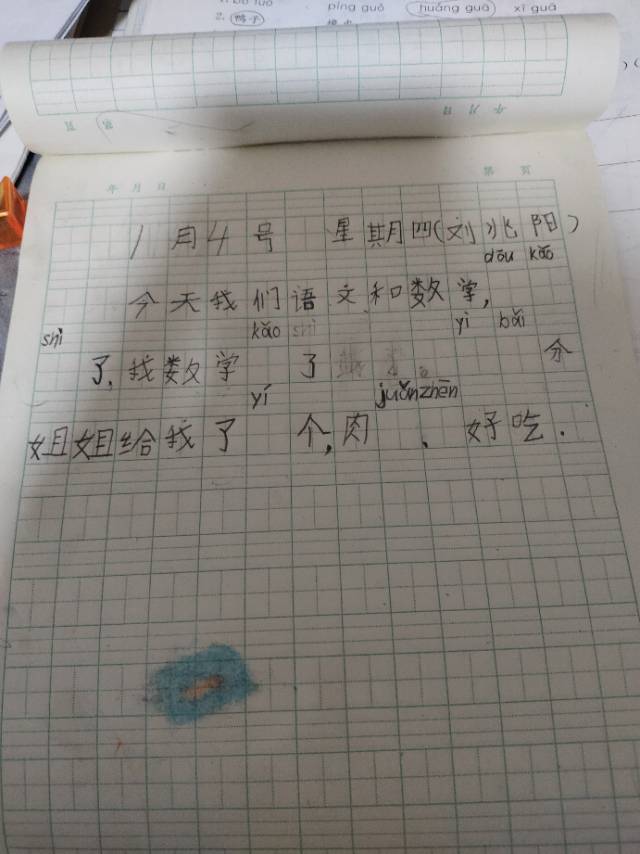 píng guǒ huáng guā xī guā
2. 鸭子
年 月 日 第 页
年 月 日 第 页
1月4号 星期四(刘兆阳)
dōu kǎo
今天我们语文和数学,
shì kǎo shì yì bǎi
了,我数学 了 分
yí juǎnzhēn
姐姐给我了 个,肉 、 好吃.